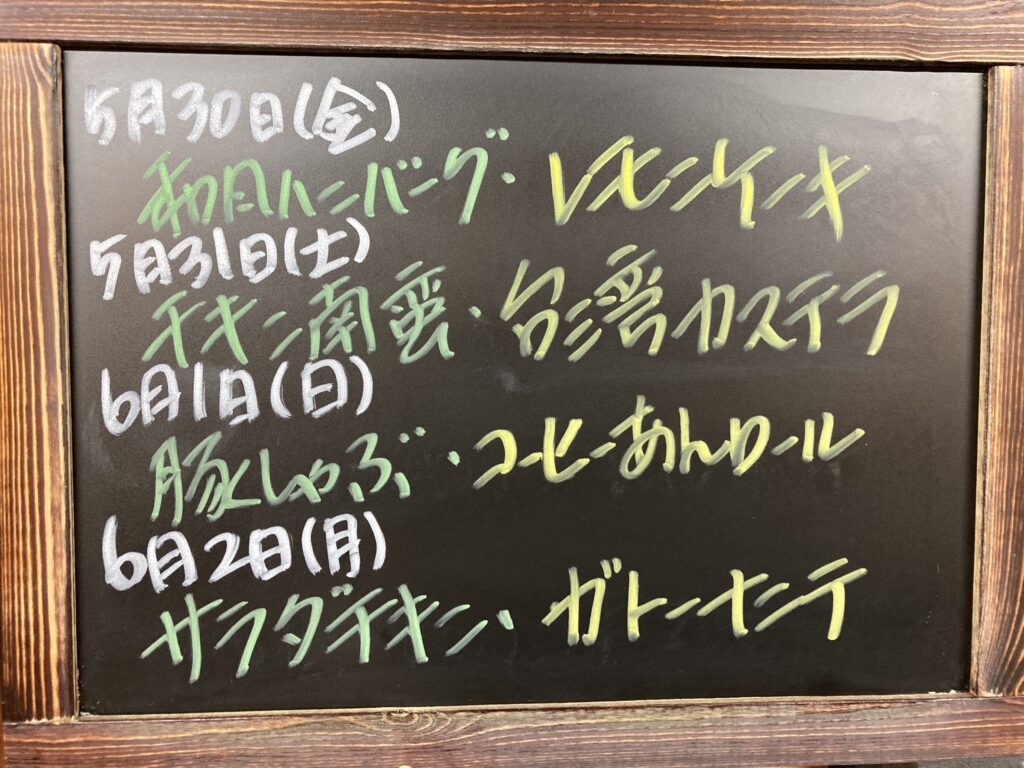 5月30日(金)
和風ハンバーグ・レモンケーキ
5月31日(土)
チキン南蛮・台湾カステラ
6月1日(日)
豚しゃぶ・コーヒーあんロール
6月2日(月)
サラダチキン・ガトーセンテ